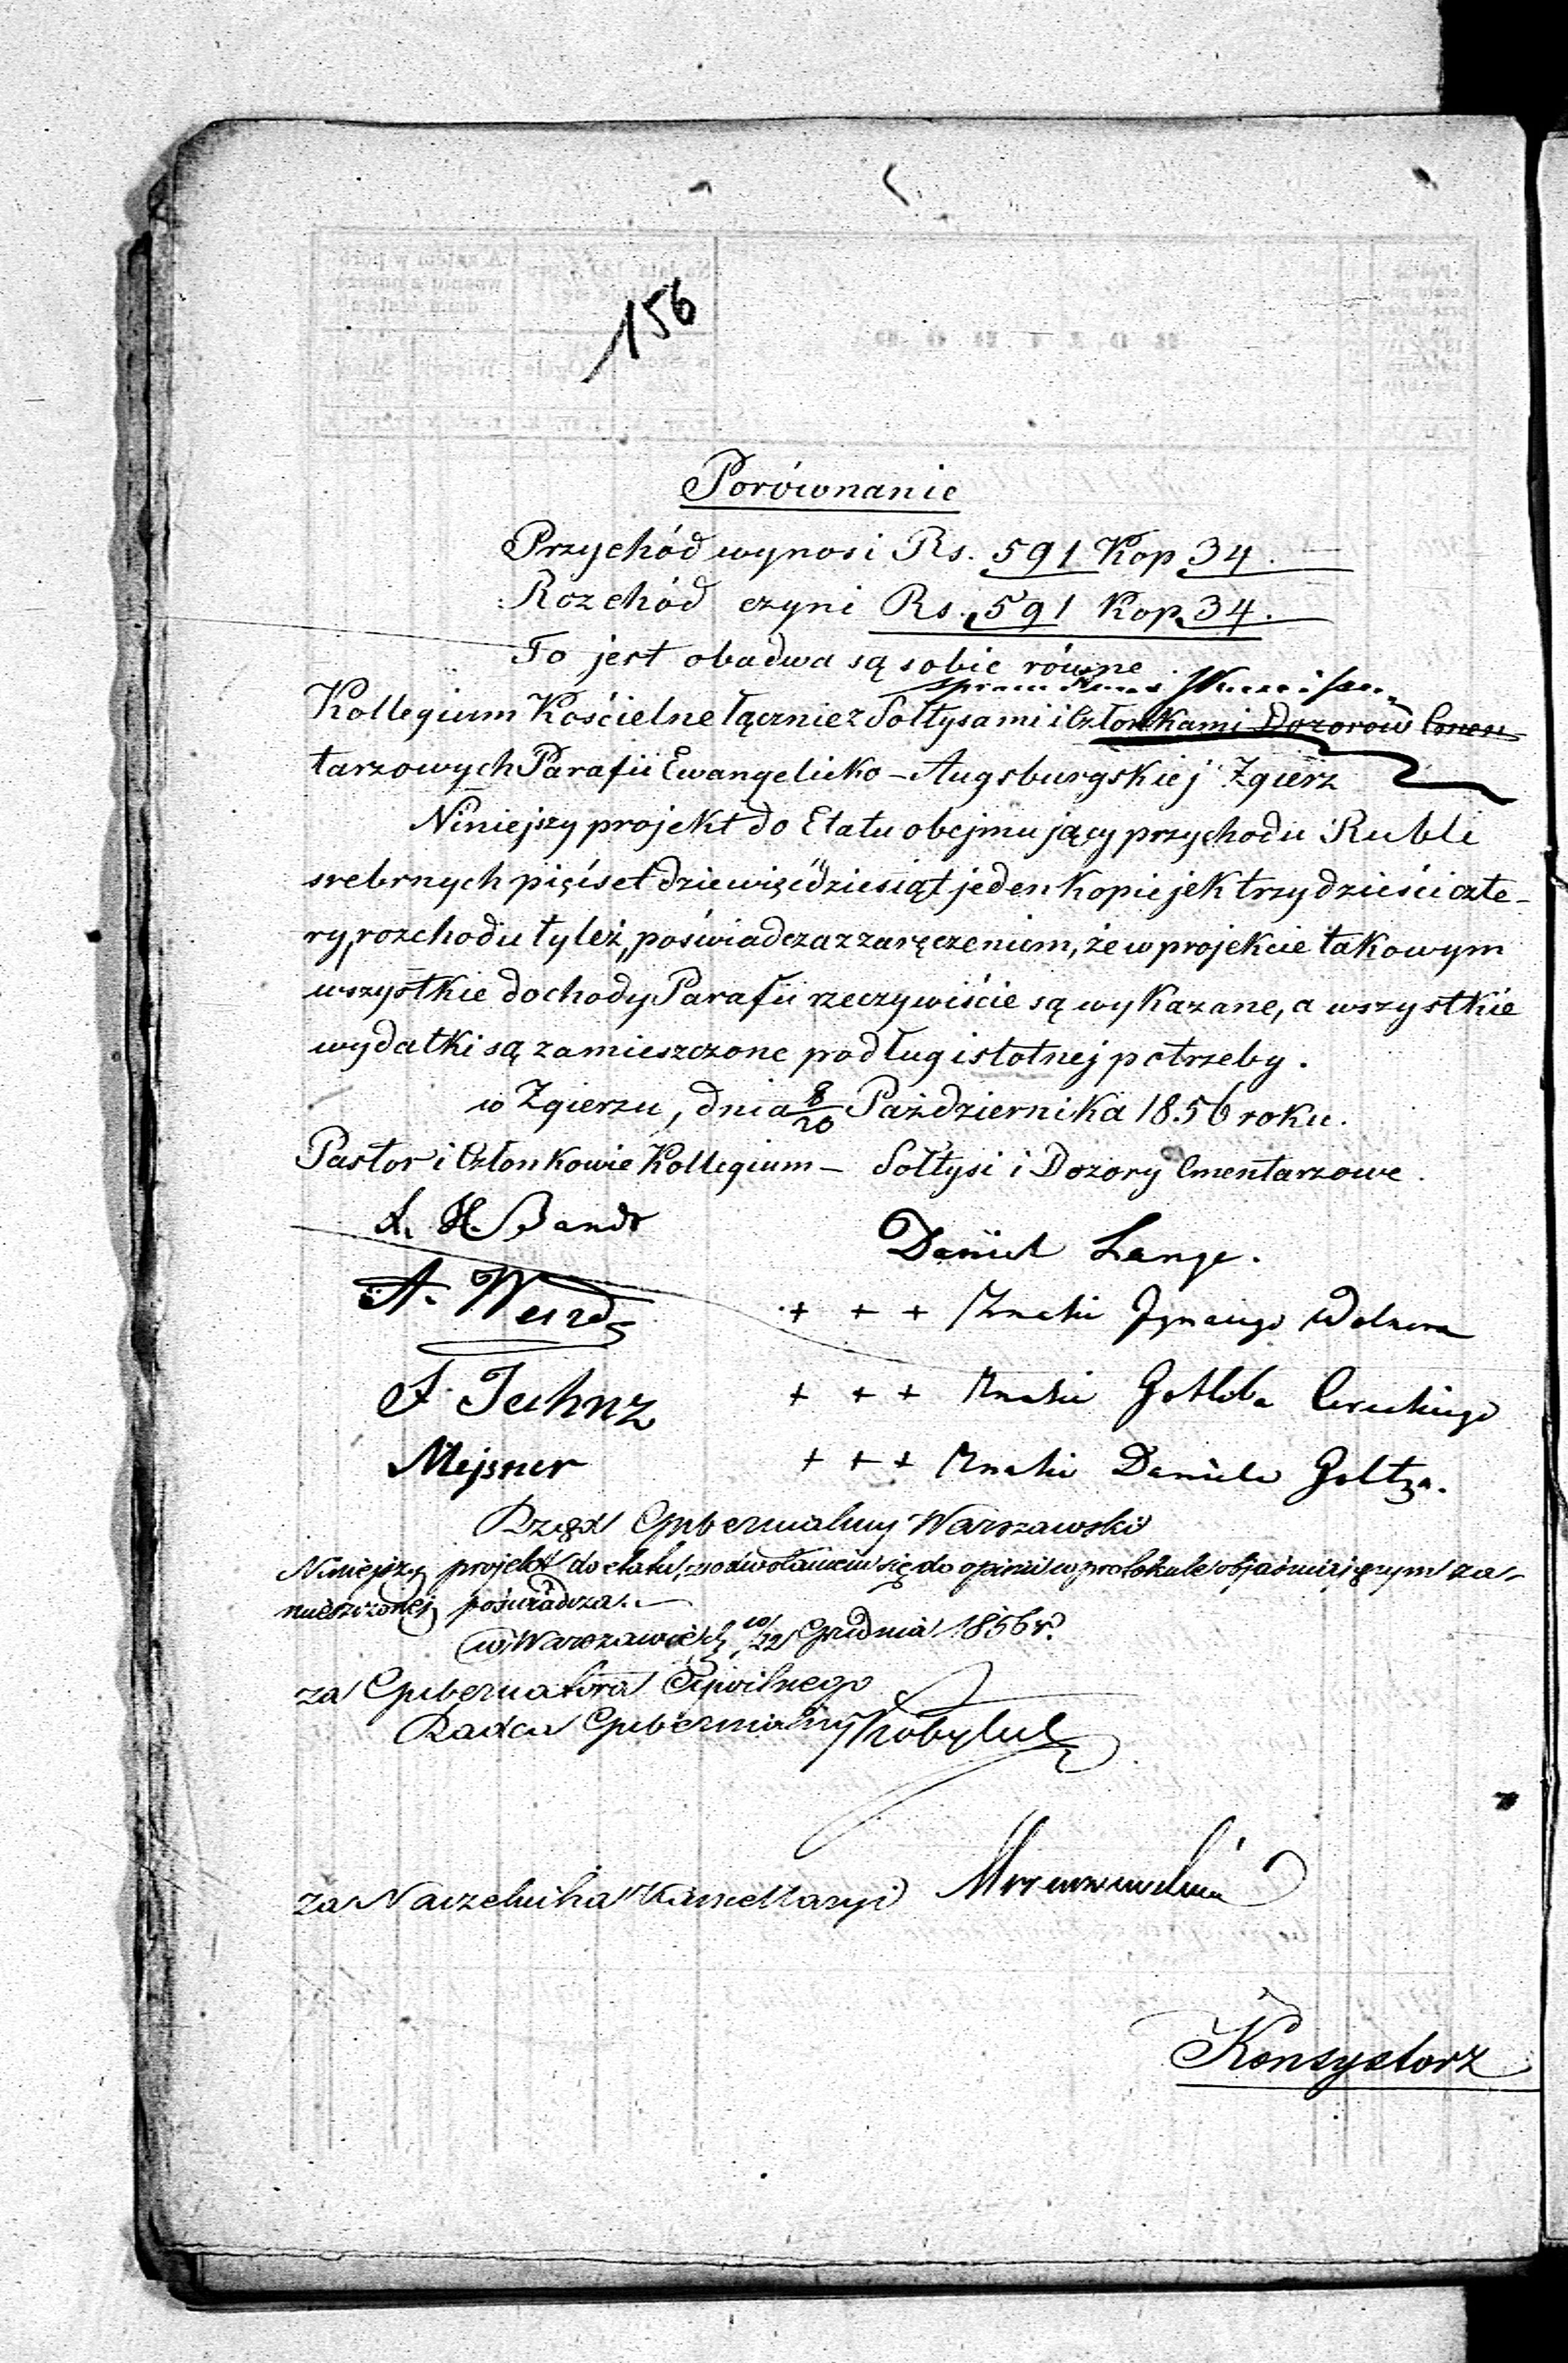 156
Porównanie
Przychód wynosi Rs. 591 Kop 34.
Rozchód czyni Rs. 591 Kop 34.
To jest obadwa są sobie równe.
Kollegium Kościelne łącznie z Sołtysami i Członkami Dozorów Cmen-
tarzowych Parafii Ewangelicko-Augsburgskiej Zgierz
Niniejszy projekt do Etatu obejmujący przychodu Rubli
srebrnych pięćset dziewięćdziesiąt jeden Kopiejek trzydzieści czte-
ry, rozchodu tyleż, poświadcza z zaręczeniem, że w projekcie takowym
wszystkie dochody Parafii rzeczywiście są wykazane, a wszystkie
wydatki są zamieszczone podług istotnej potrzeby.
w Zgierzu, dnia 8/20 Października 1856 roku.
Pastor i Członkowie Kollegium – Sołtysi i Dozory Cmentarzowe.
Daniel Lange.
+ + + Znaki Ignacego
+ + + Znaki Gotliba
Mejsner
+ + + Znaki Daniela Goltza.
Rząd Gubernialny Warszawski
Niniejszy projekt do etatu, z odwołaniem się do opinii w protokule objaśniającym za-
mieszczonej poświadcza.
w Warszawie d. 10/22 Grudnia 1856 r.
za Gubernatora Cywilnego
Radca Gubernialny
za Naczelnika Kancellaryi
Konsystorz